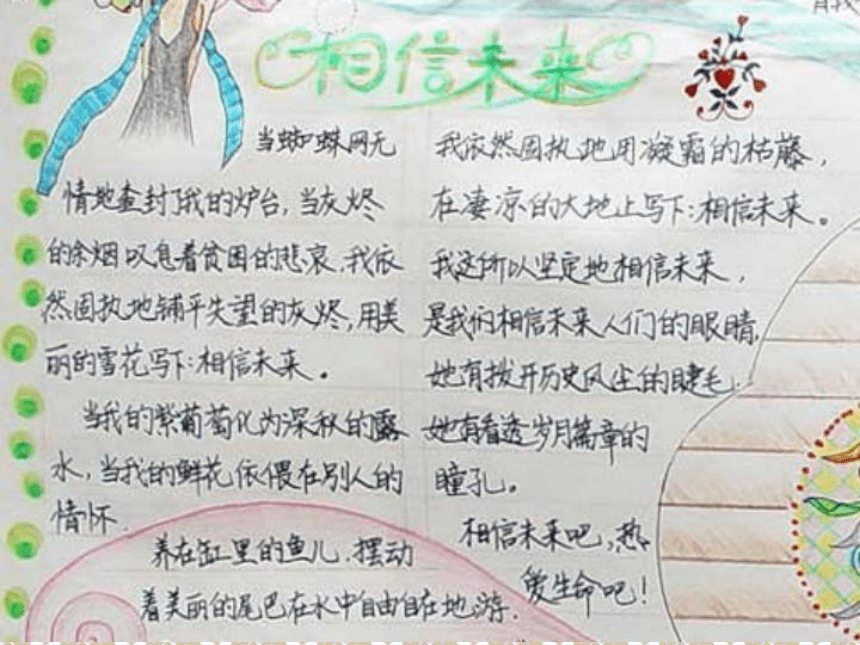 相信未来
当蜘蛛网无
情地查封了我的炉台,当灰烬
的余烟叹息着贫困的悲哀,我依
然固执地铺平失望的灰烬,用美
丽的雪花写下:相信未来。
当我的紫葡萄化为深秋的露
水,当我的鲜花依偎在别人的
情怀.
养在缸里的鱼儿.摆动
着美丽的尾巴在水中自由自在地游.
我依然固执地用凝霜的枯藤,
在凄凉的大地上写下:相信未来。
我这所以坚定地相信未来,
是我们相信未来人们的眼睛,
她有拨开历史风尘的睫毛.
她有看透岁月篇章的
瞳孔。
相信未来吧,热
爱生命吧!